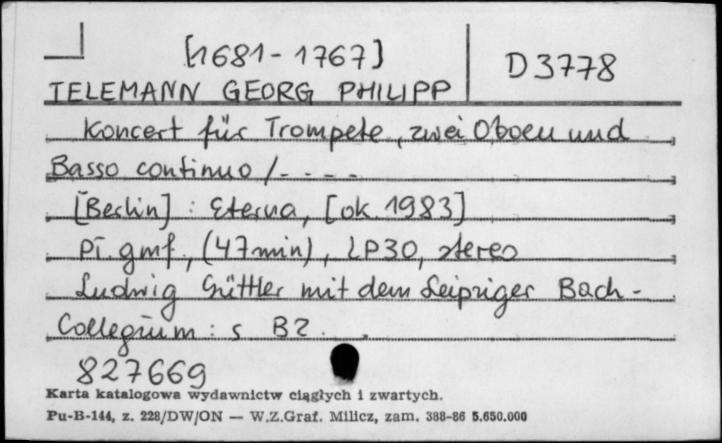 [1681-1767]
D3778
TELEMANN GEORG PHILIPP
Koncert für Trompete, zwei Oboen und
Basso continuo /- - - -
[Berlin] : Eterna, [ok. 1983]
pł. gmf., (47min), LP30, stereo
Ludwig Güttler mit dem Leipziger Bach-
Collegium : s B2.
827669
Karta katalogowa wydawnictw ciągłych i zwartych.
Pu-B-144, z. 228/DW/ON — W.Z.Graf. Milicz, zam. 388-86 5.650.000